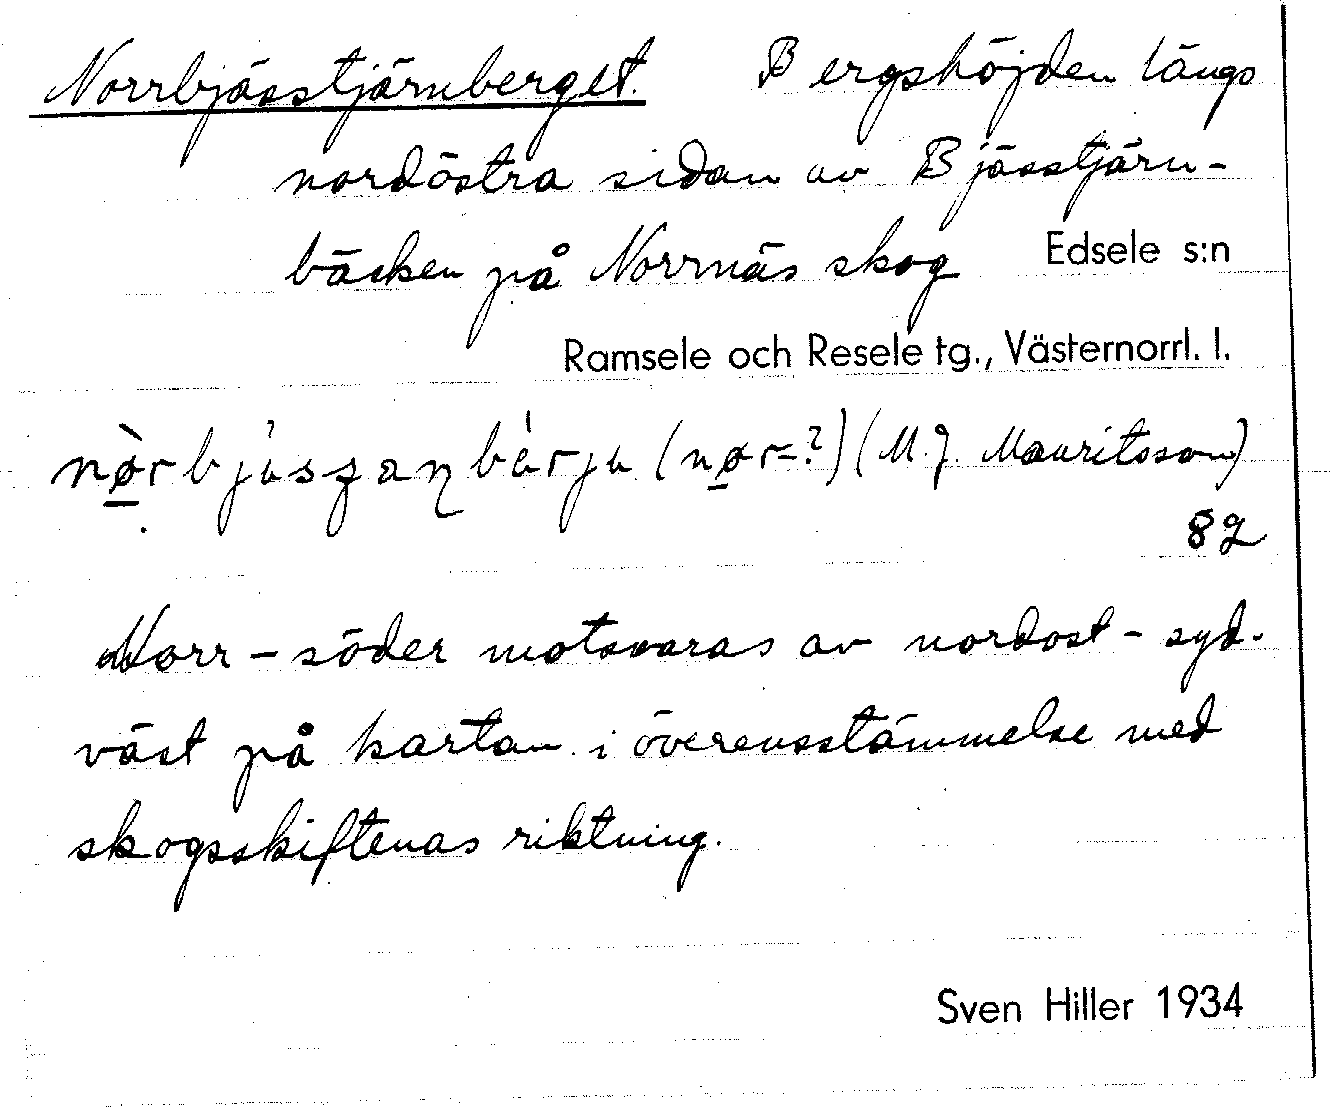 Norrbjässtjärnberget. Bergshöjden längs
nordöstra sidan av Bjässtjärn-
bäcken på Norrnäs skog Edsele s:n
Ramsele och Resele tg., Västernorrl. l.
(M. J. Mauritsson)
82
Norr - söder motsvaras av nordost - syd-
väst på kartan i överensstämmelse med
skogsskiftenas riktning.
Sven Hiller 1934